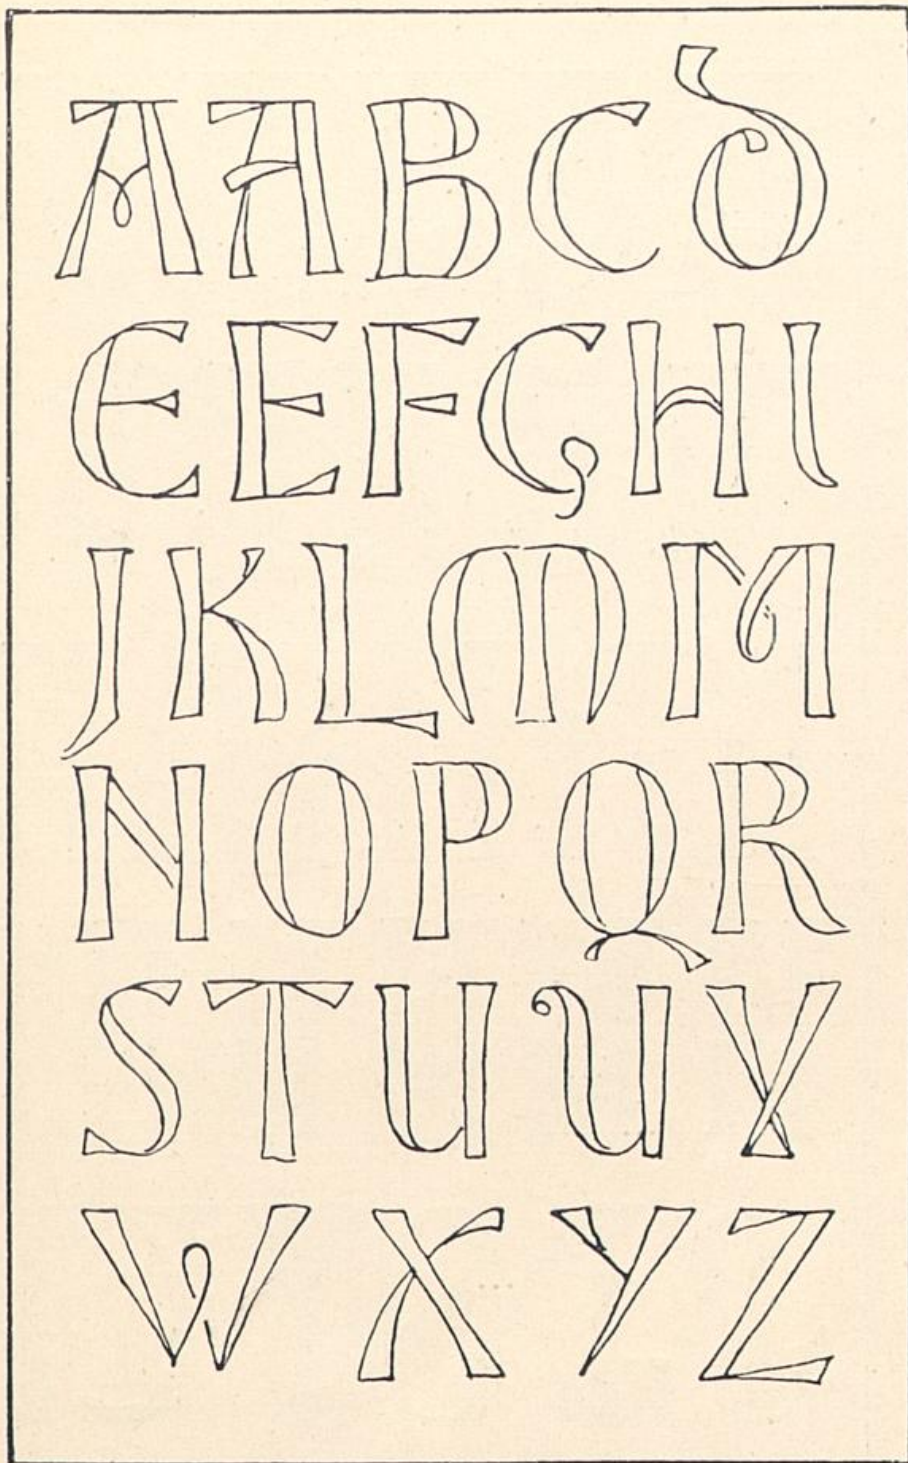 AABCD
EEFGHI
JKLMM
NOPQR
STUUV
WXYZ